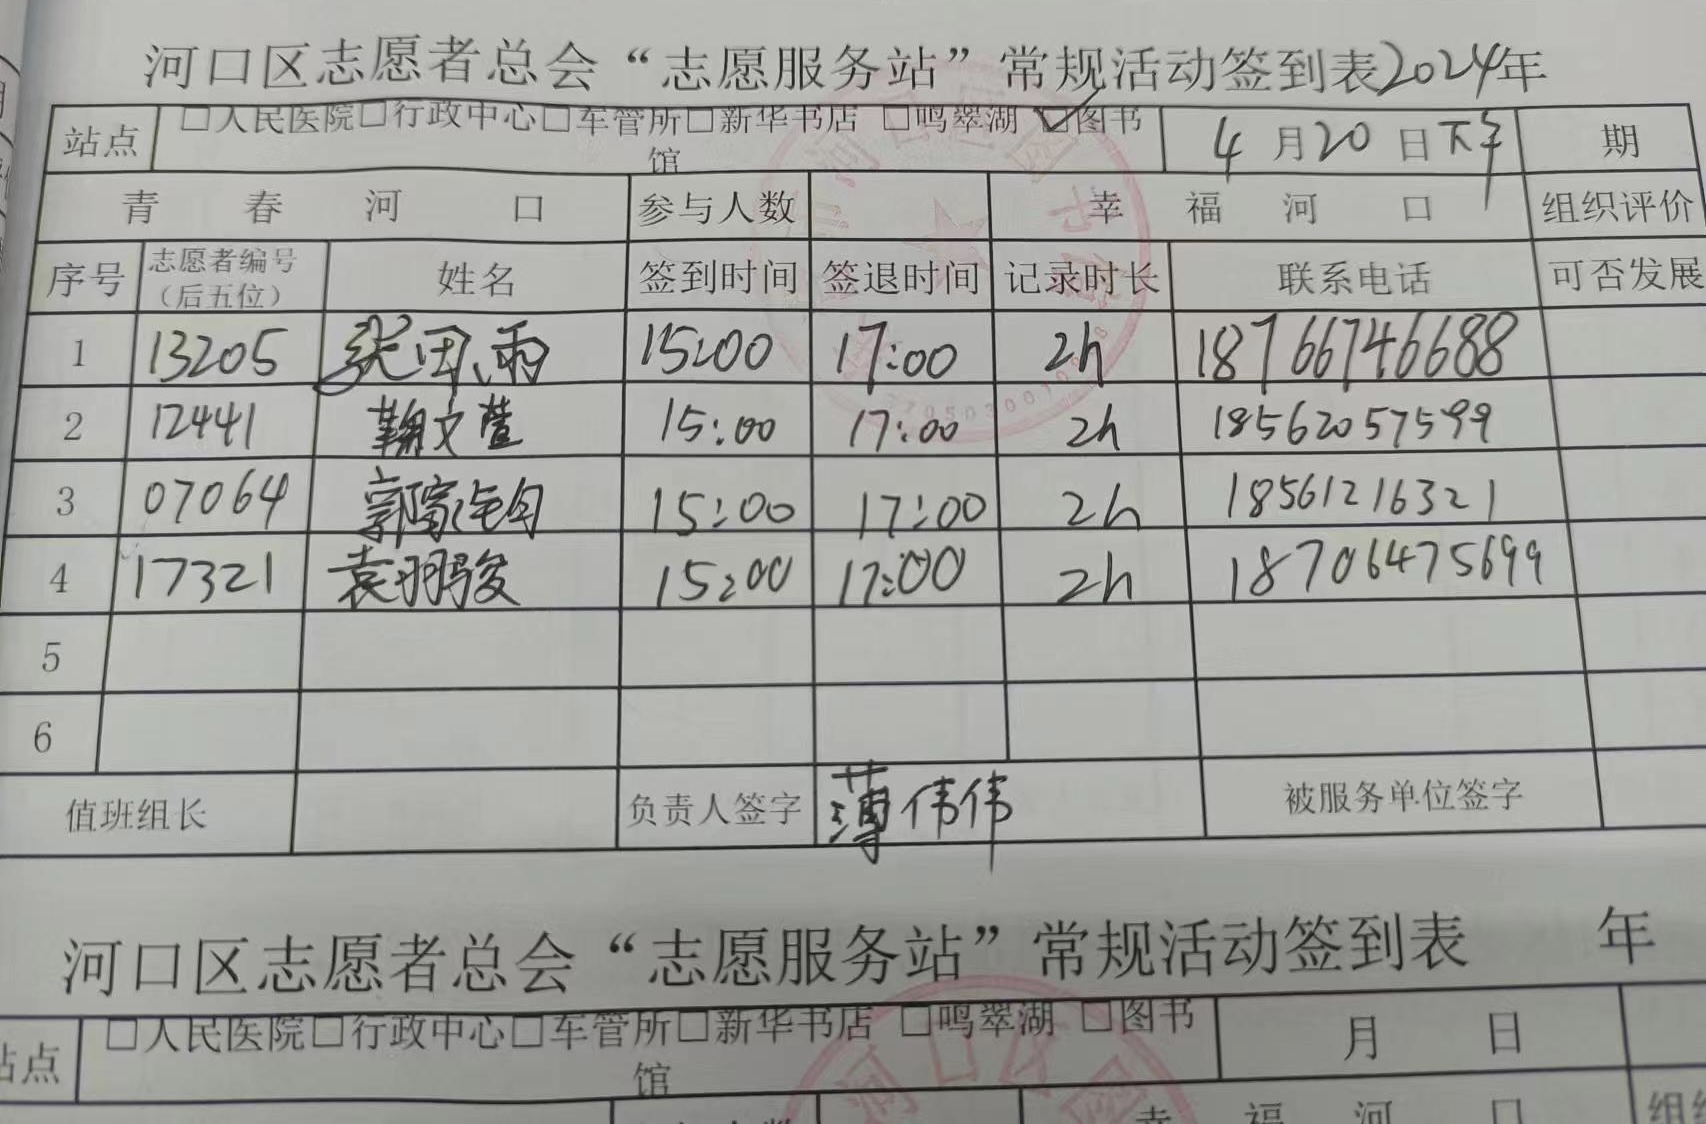 河口区志愿者总会“志愿服务站”常规活动签到表2024年
站点 □人民医院□行政中心□车管所□新华书店 □鸣翠湖 ☑图书馆 4月20日下午 期
青春河口 参与人数 幸福河口 组织评价
序号 志愿者编号（后五位） 姓名 签到时间 签退时间 记录时长 联系电话 可否发展
1 13205 张田雨 15:00 17:00 2h 18766746688
2 12441 鞠文萱 15:00 17:00 2h 18562057599
3 07064 郭家 15:00 17:00 2h 18561216321
4 17321 袁翊骏 15:00 17:00 2h 18706475699
5
6
值班组长 负责人签字 薄伟伟 被服务单位签字
河口区志愿者总会“志愿服务站”常规活动签到表 年
站点 □人民医院□行政中心□车管所□新华书店 □鸣翠湖 □图书馆 月 日
幸福河口 组